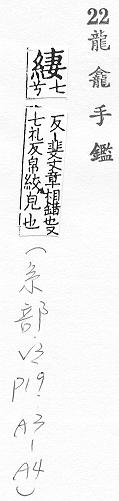 22 龍龕手鑑
緀 七兮
反丨斐文章相錯也又
七礼反帛紋皃也
(糸部.V3 P19. A3-A4)